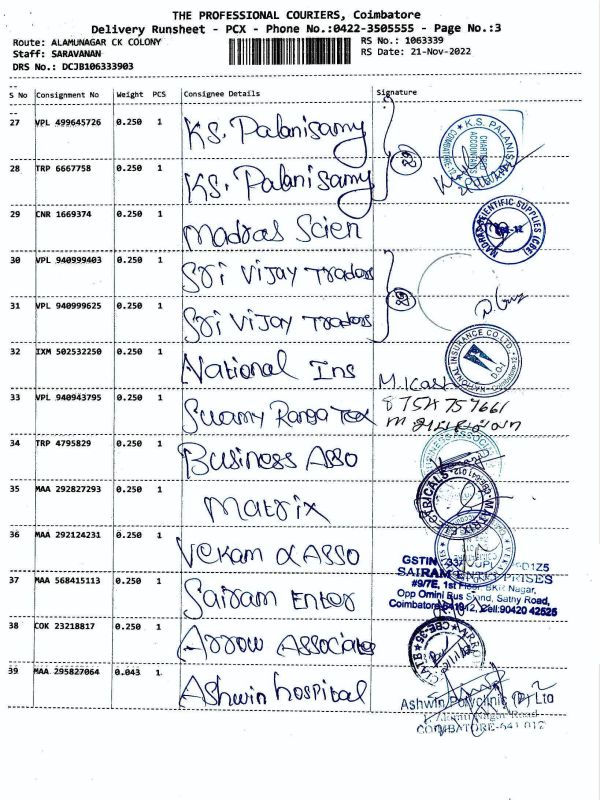 THE PROFESSIONAL COURIERS, Coimbatore
Delivery Runsheet - PCX - Phone No.:0422-3505555 - Page No.:3
Route: ALAMUNAGAR CK COLONY
RS No.: 1063339
Staff: SARAVANAN
RS Date: 21-Nov-2022
DRS No.: DCJB106333903
S No Consignment No Weight PCS Consignee Details Signature
27 VPL 499645726 0.250 1 KS. Palanisamy
28 TRP 6667758 0.250 1 KS. Palanisamy
29 CNR 1669374 0.250 1 Madras Scien
30 VPL 940999403 0.250 1 Sri Vijay Traders
31 VPL 940999625 0.250 1 Sri Vijay Traders
32 IXM 502532250 0.250 1 National Ins
33 VPL 940943795 0.250 1 Swamy Ranga Tex
34 TRP 4795829 0.250 1 Business Asso
35 MAA 292827293 0.250 1 Matrix
36 MAA 292124231 0.250 1 Vekam & Asso
37 MAA 568415113 0.250 1 Sairam Enter
38 COK 23218817 0.250 1 Arrow Associates
39 MAA 295827064 0.043 1 Ashwin hospital
29
★ K.S. PALANISAMY
CHARTERED
ACCOUNTANTS
MADRAS SCIENTIFIC SUPPLIES (CBE)
29
NATIONAL INSURANCE CO. LTD.
D.O.I
8754757661
BUSINESS ASSOCI
MATRIX ELECTRICALS
GSTIN
SAIRAM ENTERPRISES
#9/7E, 1st Floor, BKR Nagar,
Opp Omini Bus Stand, Sathy Road,
Coimbatore-641012, Cell:90420 42525
Ashwin Polyclinic (P) Ltd
Nagar Road
COIMBATORE-641 012